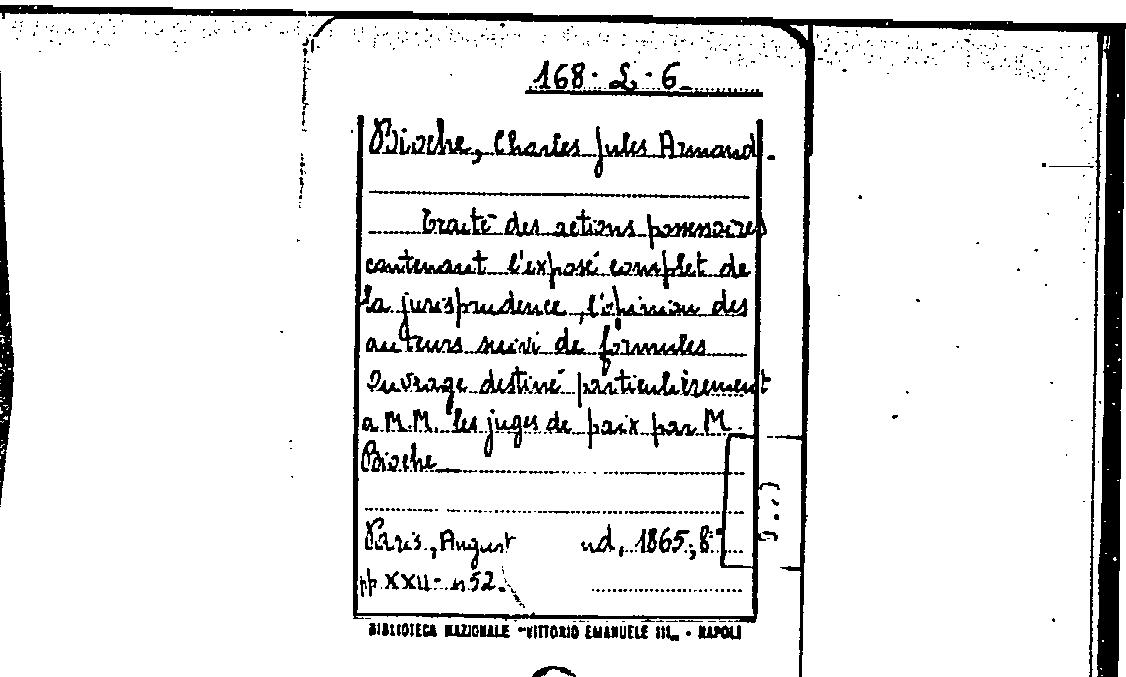 168. L. 6.
Bioche, Charles Jules Armand.
Traité des actions possessoires
contenant l'exposé complet de
la jurisprudence, l'opinion des
auteurs suivi de formules
Ouvrage destiné particulièrement
a M.M. les juges de paix par M.
Bioche
Paris, August nd, 1865; 8º
pp XXII-
BIBLIOTECA NAZIONALE "VITTORIO EMANUELE III" - NAPOLI